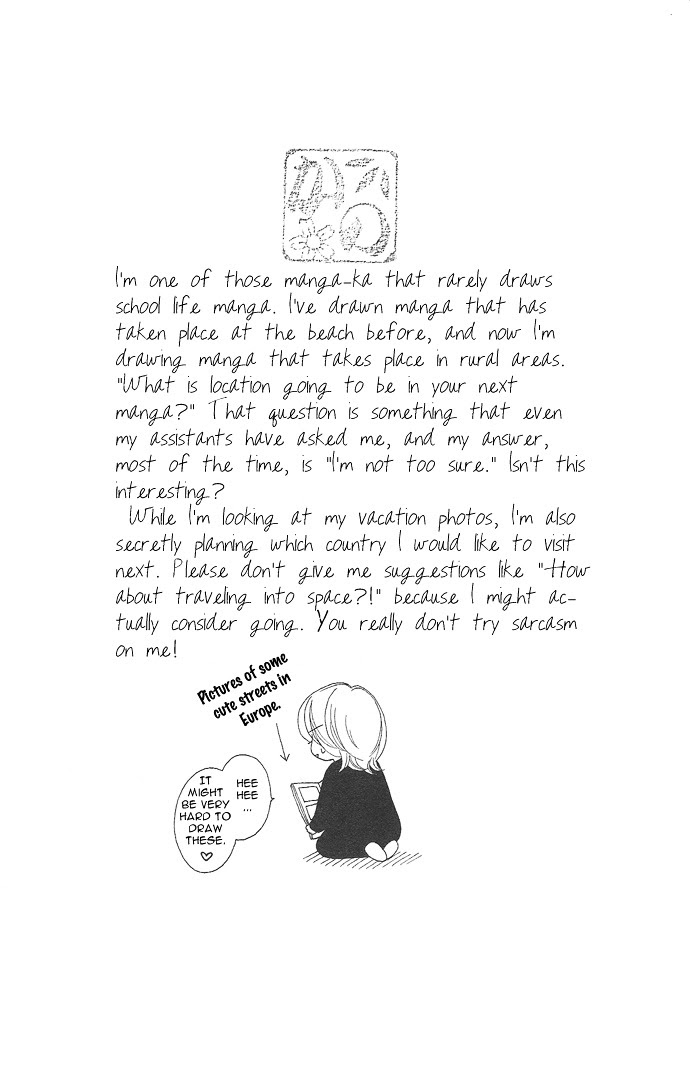 I'm one of those manga-ka that rarely draws
school life manga. I've drawn manga that has
taken place at the beach before, and now I'm
drawing manga that takes place in rural areas.
"What is location going to be in your next
manga?" That question is something that even
my assistants have asked me, and my answer,
most of the time, is "I'm not too sure." Isn't this
interesting?
While I'm looking at my vacation photos, I'm also
secretly planning which country I would like to visit
next. Please don't give me suggestions like "How
about traveling into space?!" because I might ac-
tually consider going. You really don't try sarcasm
on me!
Pictures of some
cute streets in
Europe.
HEE
HEE
...
IT
MIGHT
BE VERY
HARD TO
DRAW
THESE.
♡